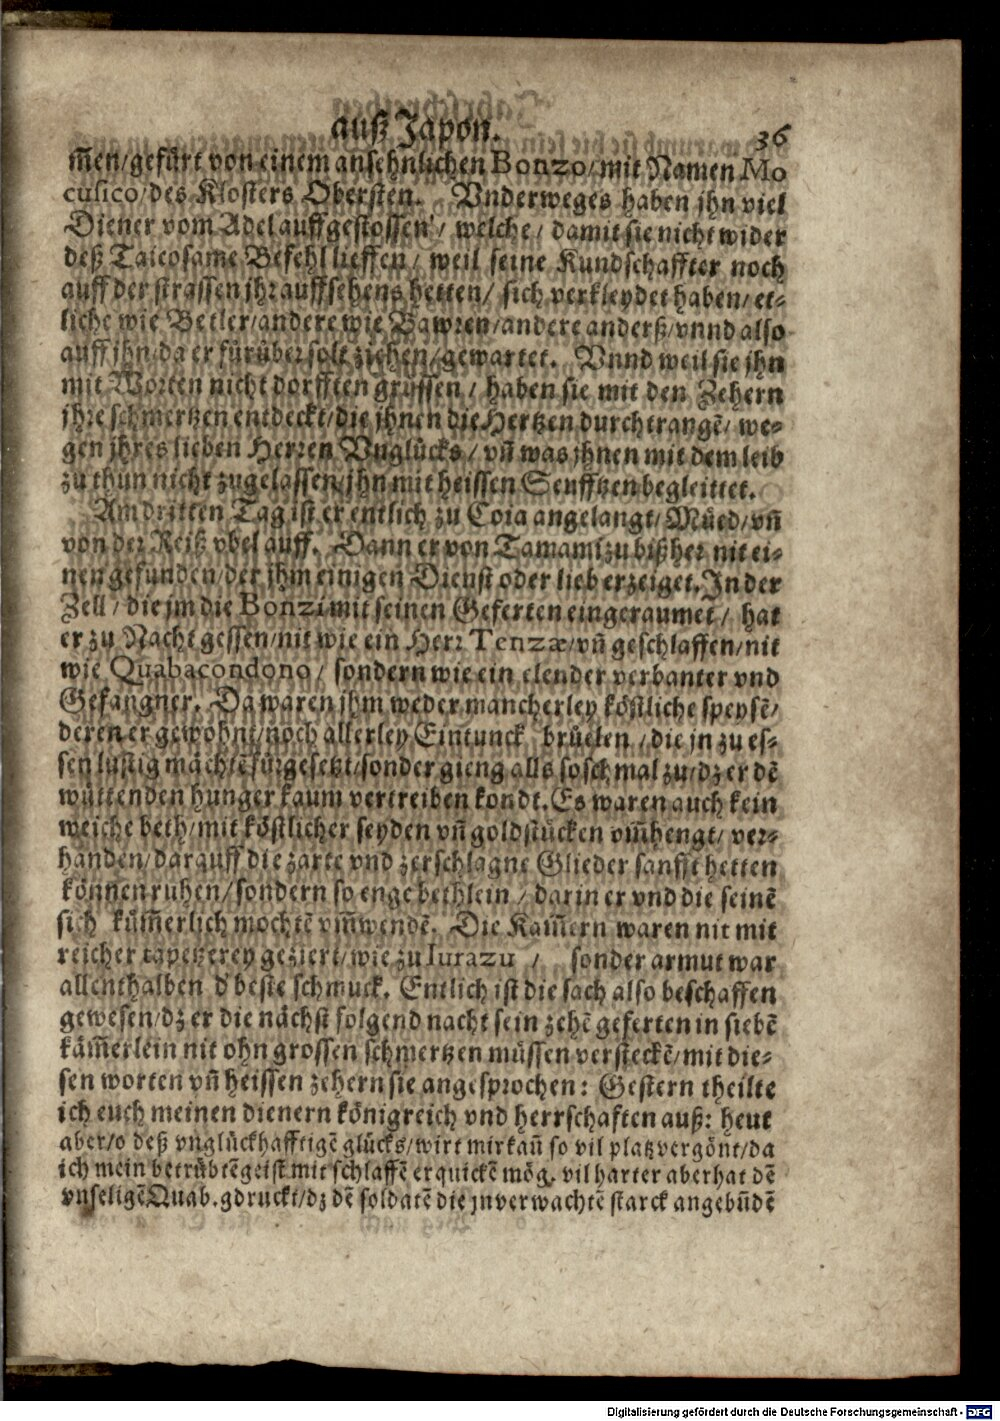 auß Japon. 36
m̃en/gefürt von einem ansehnlichen Bonzo/mit Namen Mo
cusico/des Klosters Obersten. Vnderweges haben jhn viel
Diener vom Adel auffgestossen/ welche/ damit sie nicht wider
deß Taicosame Befehl lieffen/ weil seine Kundschaffter noch
auff der strassen jhr auffsehens hetten/ sich verkleydet haben/et-
liche wie Betler/andere wie Bawren/andere anderß/vnnd also
auff jhn/da er fürüber solt ziehen/gewartet. Vnnd weil sie jhn
mit Worten nicht dorfften grüssen/ haben sie mit den Zehern
jhre schmertzen entdeckt/die jhnen die Hertzen durchtrangẽ/ we-
gen jhres lieben Herren Vnglücks/ vñ was jhnen mit dem leib
zu thun nicht zugelassen/jhn mit heissen Seufftzen begleittet.
Am dritten Tag ist er entlich zu Coia angelangt/Müed/vñ
von der Reiß vbel auff. Dann er von Tamamizu bißher nit ei-
nen gefunden/der jhm einigen Dienst oder lieb erzeiget. In der
Zell/ die jm die Bonzi mit seinen Geferten eingeraumet/ hat
er zu Nacht gessen/nit wie ein Herr Tenzæ/vñ geschlaffen/nit
wie Quabacondono/ sondern wie ein elender verbanter vnd
Gefangner. Da waren jhm weder mancherley köstliche speysẽ/
deren er gewohnt/noch allerley Eintunck brüelen/die jn zu es-
sen lustig mächtẽ fürgesetzt/sonder gieng alls so schmal zu/dz er dẽ
wüttenden hunger kaum vertreiben kondt. Es waren auch kein
weiche beth/mit köstlicher seyden vñ goldstücken vm̃hengt/ ver-
handen/darauff die zarte vnd zerschlagne Glieder sanfft hetten
können ruhen/sondern so enge bethlein/ darin er vnd die seinẽ
sich küm̃erlich mochtẽ vm̃wendẽ. Die Kam̃ern waren nit mit
reicher tapetzerey geziert/wie zu Iurazu/ sonder armut war
allenthalben d' beste schmuck. Entlich ist die sach also beschaffen
gewesen/dz er die nächst folgend nacht sein zehẽ geferten in siebẽ
käm̃erlein nit ohn grossen schmertzen müssen versteckẽ/mit die-
sen worten vñ heissen zehern sie angesprochen: Gestern theilte
ich euch meinen dienern königreich vnd herrschaften auß: heut
aber/o deß vnglückhafftigẽ glücks/wirt mir kañ so vil platz vergönt/da
ich mein betrübtẽ geist mit schlaffẽ erquickẽ mög. vil harter aber hat dẽ
vnseligẽ Quab. gdruckt/dz dẽ soldatẽ die jn verwachtẽ starck angebũdẽ
Digitalisierung gefördert durch die Deutsche Forschungsgemeinschaft - DFG